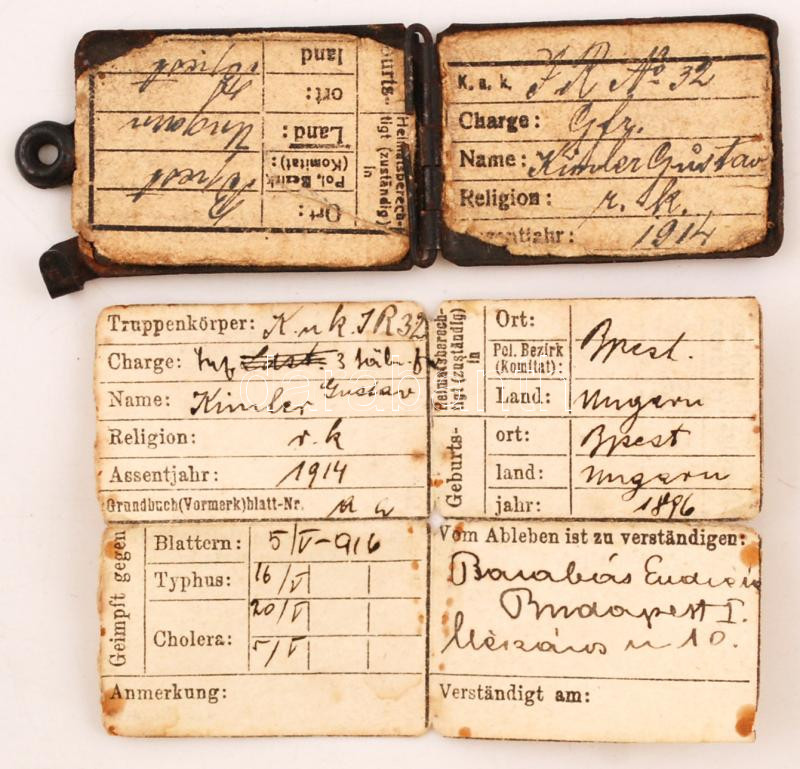 K. u. k. IR No 32
Charge: Gfr.
Name: Kimler Gustav
Religion: r. k.
1914
Ort: Bpest
Pol. Bezirk (Komitat):
Land: Ungarn
ort: Bpest
land
Heimatsberechtigt (zuständig) in
Truppenkörper: K. u k. IR 32
Charge: Inf.
Name: Kimler Gustav
Religion: r. k
Assentjahr: 1914
Grundbuch(Vormerk)blatt-Nr.
Heimatsberechtigt (zuständig) in
Ort: Bpest.
Pol. Bezirk (Komitat):
Land: Ungarn
Geburts-
ort: Bpest
land: Ungarn
jahr: 1896
Geimpft gegen
Blattern: 5/V-916
Typhus: 16/V
Cholera: 20/V
5/V
Anmerkung:
Vom Ableben ist zu verständigen:
Barabás
Budapest I.
Mészáros u 10.
Verständigt am: